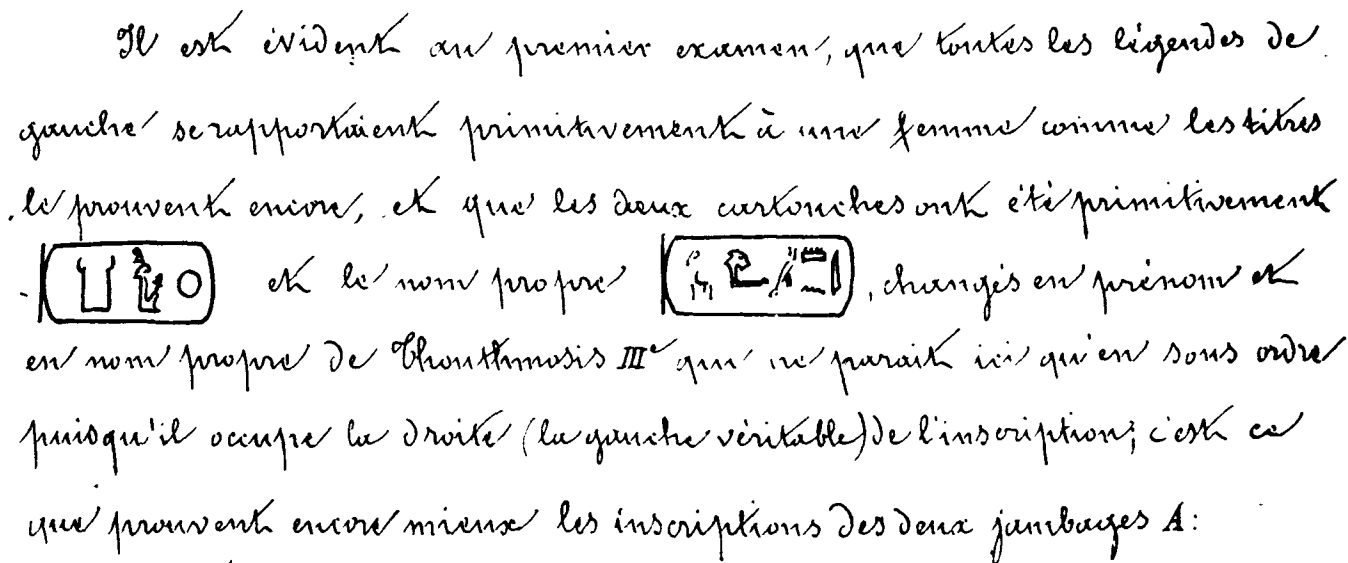 Il est évident au premier examen, que toutes les légendes de
gauche se rapportaient primitivement à une femme comme les titres
le prouvent encore, et que les deux cartouches ont été primitivement
et le nom propre , changés en prénom et
en nom propre de Thouthmosis III^e qui ne parait ici qu'en sous ordre
puisqu'il occupe la droite (la gauche véritable) de l'inscription; c'est ce
que prouvent encore mieux les inscriptions des deux jambages A: